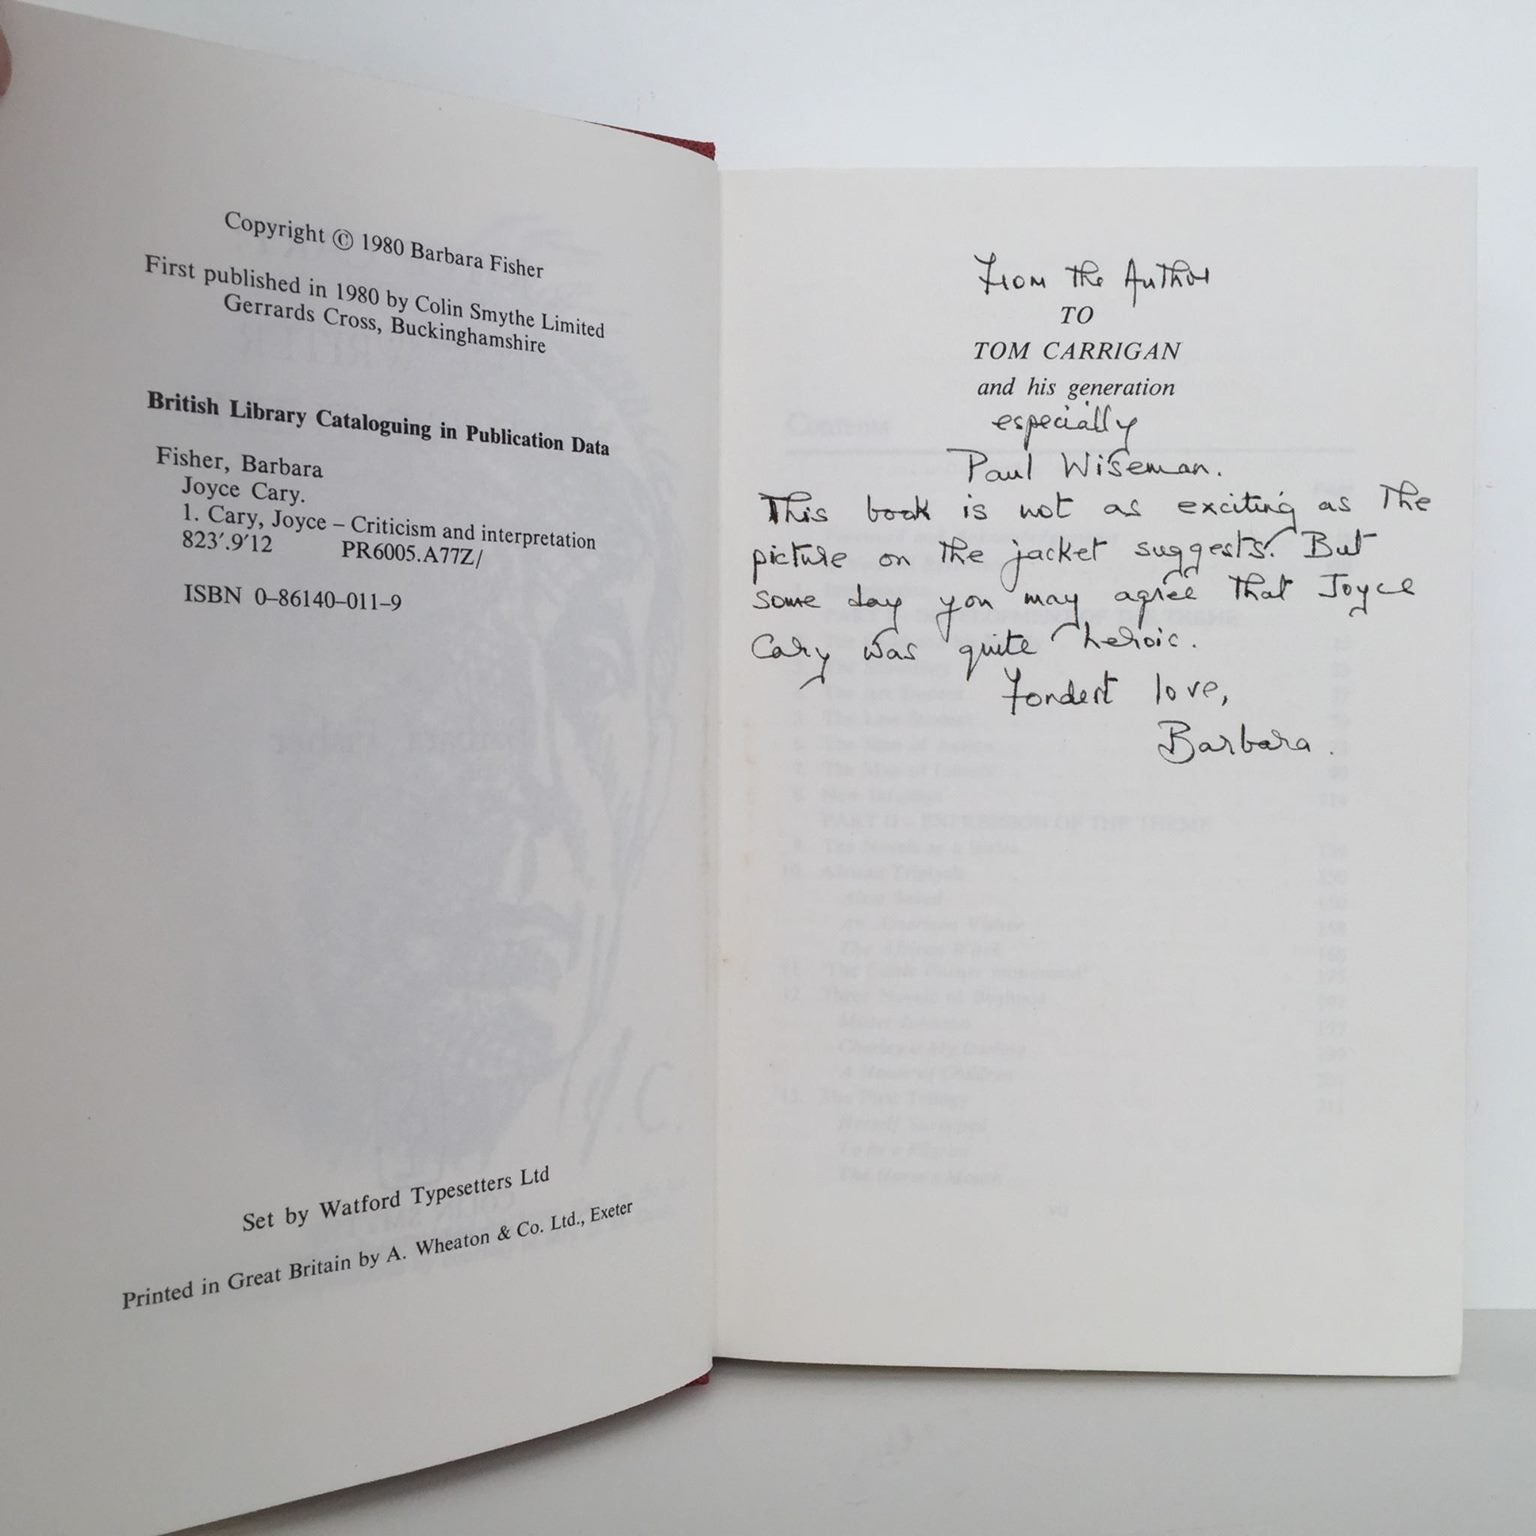 Copyright © 1980 Barbara Fisher
First published in 1980 by Colin Smythe Limited
Gerrards Cross, Buckinghamshire
British Library Cataloguing in Publication Data
Fisher, Barbara
Joyce Cary.
1. Cary, Joyce – Criticism and interpretation
823'.9'12 PR6005.A77Z/
ISBN 0–86140–011–9
Set by Watford Typesetters Ltd
Printed in Great Britain by A. Wheaton & Co. Ltd., Exeter
From the Author
TO
TOM CARRIGAN
and his generation
especially
Paul Wiseman.
This book is not as exciting as the
picture on the jacket suggests. But
some day you may agree that Joyce
Cary was quite heroic.
Fondest love,
Barbara.